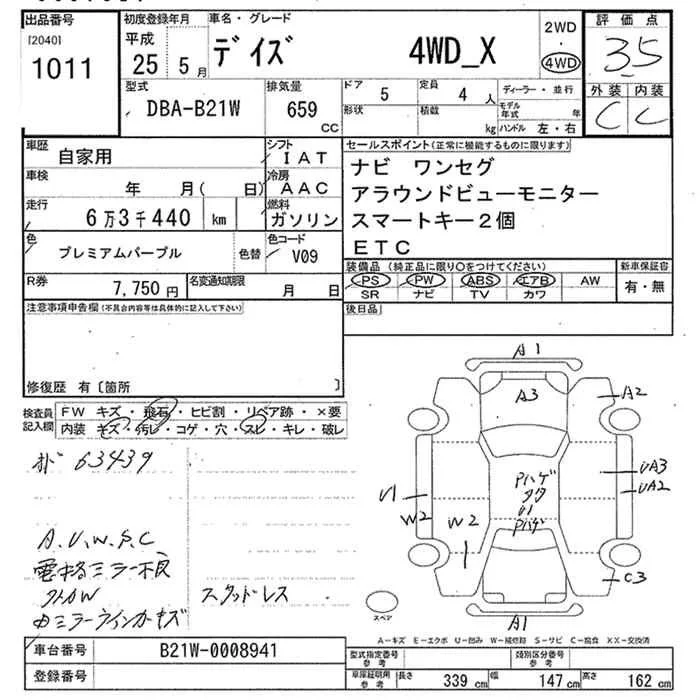 出品番号
[2040]
1011
初度登録年月
平成
25 5月
車名・グレード
デイズ 4WD_X
2WD
・
4WD
評価点
3.5
外装 内装
C C
型式
DBA-B21W
排気量
659
CC
ドア 5
定員 4人
形状
積載 kg
ディーラー・並行
モデル年式 年
ハンドル 左・右
車歴 自家用
シフト IAT
車検 年 月( 日)
冷房 AAC
走行 6万3千440 km
燃料 ガソリン
色 プレミアムパープル
色替
色コード V09
R券 7,750円
名変通知期限 月 日
セールスポイント(正常に機能するものに限ります)
ナビ ワンセグ
アラウンドビューモニター
スマートキー2個
ETC
装備品(純正品に限り○をつけてください)
PS PW ABS エアB AW
SR ナビ TV カワ
新車保証書
有・無
注意事項申告欄(不具合内容等は具体的に記入して下さい)
後日品
修復歴 有〔箇所 〕
検査員記入欄
FW キズ・飛石・ヒビ割・リペア跡・×要
内装 キズ・汚レ・コゲ・穴・スレ・キレ・破レ
63439
A.U.W.S.C
電格ミラー不良
スタッドレス
A1
A3
A2
UA3
UA2
Pハゲ
U1
Pハゲ
U1
W2
W2
C3
A1
スペア
A-キズ E-エクボ U-凹み W-補修跡 S-サビ C-腐食 XX-交換済
車台番号 B21W-0008941
登録番号
型式指定番号 参考
類別区分番号 参考
車庫証明用 参考
長さ 339 cm 幅 147 cm 高さ 162 cm